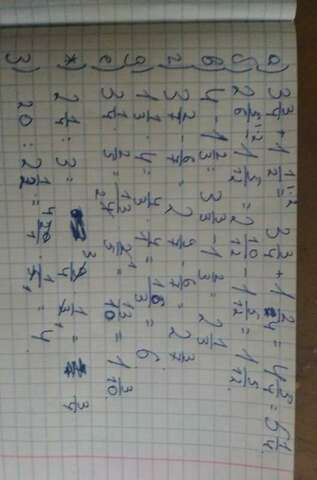 а) 3 3/4 + 1 1/2 = 3 3/4 + 1 2/4 = 4 5/4 = 5 1/4.
б) 2 5/6 - 1 5/12 = 2 10/12 - 1 5/12 = 1 5/12.
в) 4 - 1 2/3 = 3 3/3 - 1 2/3 = 2 1/3
г) 3 2/7 - 6/7 = 2 9/7 - 6/7 = 2 3/7
д) 1 1/3 · 4 = 4/3 · 4/1 = 16/3 = 6
е) 3 1/4 · 2/5 = 13/4 · 2/5 = 13/10 = 1 3/10
ж) 2 1/4 : 3 = 9/4 · 1/3 = 3/4
з) 20 : 2 1/2 = 4.